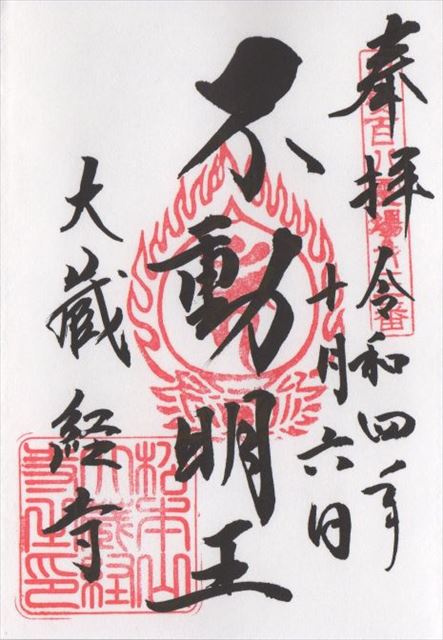 奉拝
令和四年
十月六日
不動明王
大蔵経寺